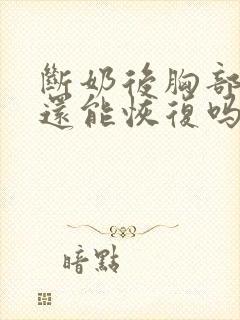 斷奶後胸部
還能恢復吗
暗點